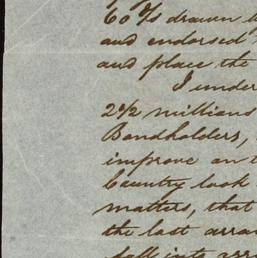 60 %s drawn
and endorsed
and place the
I under
2½ millions
Bondholders,
improve an
Country look
matters, that
the last arran
fall into arr